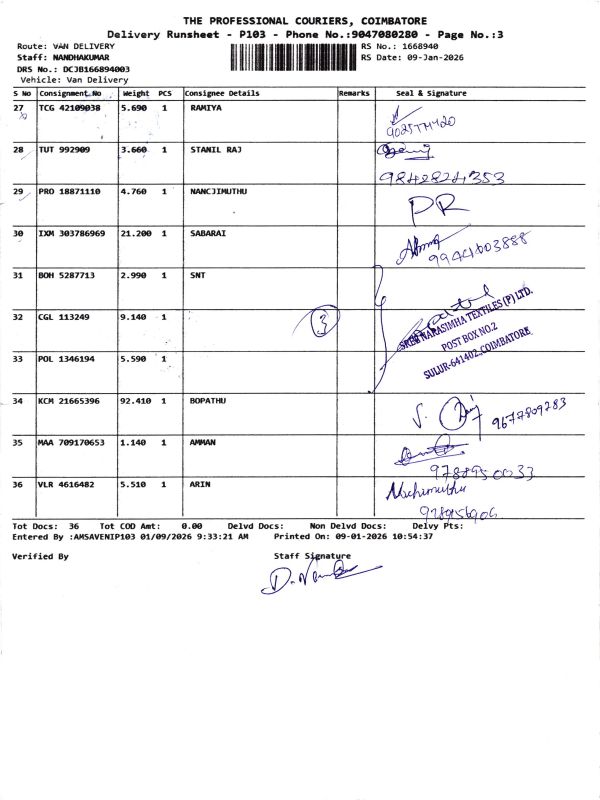 THE PROFESSIONAL COURIERS, COIMBATORE
Delivery Runsheet - P103 - Phone No.:9047080280 - Page No.:3
Route: VAN DELIVERY RS No.: 1668940
Staff: NANDHAKUMAR RS Date: 09-Jan-2026
DRS No.: DCJB166894003
Vehicle: Van Delivery
S No Consignment No Weight PCS Consignee Details Remarks Seal & Signature
27 TCG 42109038 5.690 1 RAMIYA
28 TUT 992909 3.660 1 STANIL RAJ
9842824353
29 PRO 18871110 4.760 1 NANCJIMUTHU PR
30 IXM 303786969 21.200 1 SABARAI
9944003888
31 BOH 5287713 2.990 1 SNT
32 CGL 113249 9.140 1 3
SREE NARASIMHA TEXTILES (P) LTD.
POST BOX NO.2
SULUR-641402, COIMBATORE
33 POL 1346194 5.590 1
34 KCM 21665396 92.410 1 BOPATHU 9677809283
35 MAA 709170653 1.140 1 AMMAN
9788950033
36 VLR 4616482 5.510 1 ARIN
Tot Docs: 36 Tot COD Amt: 0.00 Delvd Docs: Non Delvd Docs: Delvy Pts:
Entered By :AMSAVENIP103 01/09/2026 9:33:21 AM Printed On: 09-01-2026 10:54:37
Verified By Staff Signature